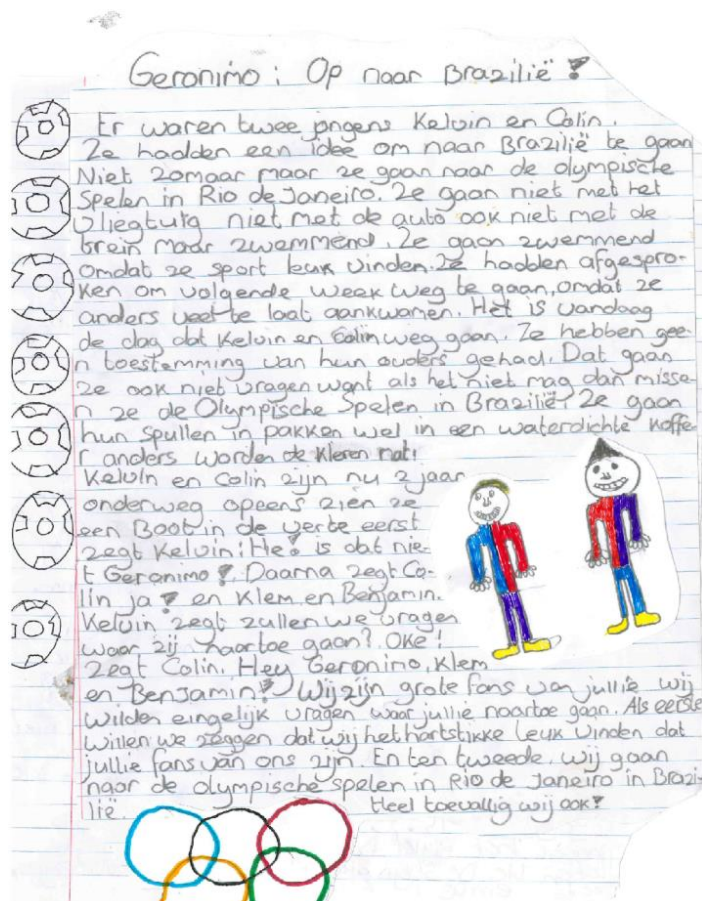 Geronimo: Op naar Brazilië!
Er waren twee jongens Kelvin en Colin.
Ze hadden een idee om naar Brazilië te gaan
Niet zomaar maar ze gaan naar de olympische
Spelen in Rio de Janeiro. Ze gaan niet met het
vliegtuig niet met de auto ook niet met de
trein maar zwemmend. Ze gaan zwemmend
omdat ze sport leuk vinden. Ze hadden afgespro-
ken om volgende week weg te gaan, omdat ze
anders veel te laat aankwamen. Het is vandaag
de dag dat Kelvin en Colin weg gaan. Ze hebben gee-
n toestemming van hun ouders gehad. Dat gaan
ze ook niet vragen want als het niet mag dan misse-
n ze de Olympische Spelen in Brazilië. Ze gaan
hun spullen in pakken wel in een waterdichte koffe-
r anders worden de kleren nat!
Kelvin en Colin zijn nu 2 jaar
onderweg opeens zien ze
een Boot in de verte eerst
zegt Kelvin: He! is dat nie-
t Geronimo!. Daarna zegt Co-
lin ja! en Klem en Benjamin.
Kelvin zegt zullen we vragen
waar zij naartoe gaan? Oke!
zegt Colin. Hey Geronimo, Klem
en Benjamin! Wij zijn grote fans van jullie wij
wilden eingelijk vragen waar jullie naartoe gaan. Als eerste
willen we zeggen dat wij het hartstikke leuk vinden dat
jullie fans van ons zijn. En ten tweede, wij gaan
naar de olympische spelen in Rio de Janeiro in Brazi-
lië. Heel toevallig wij ook!